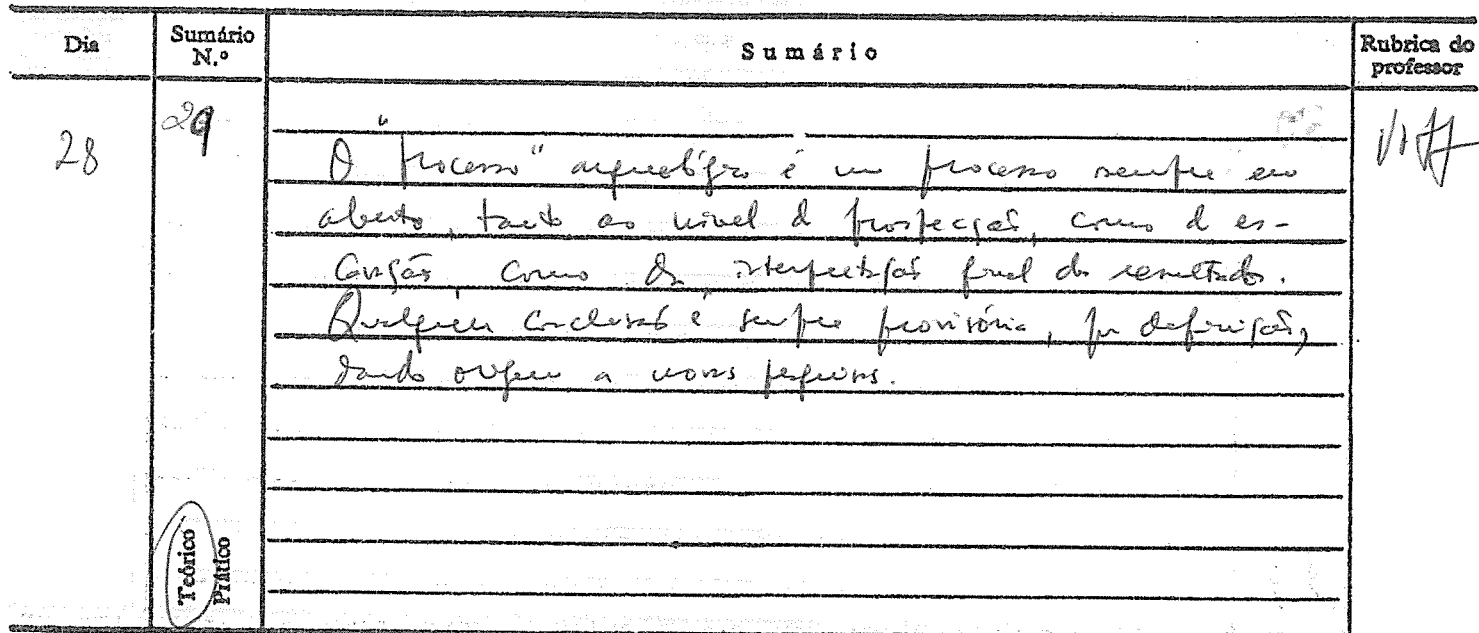 Dia
Sumário N.º
Sumário
Rubrica do professor
28
29
O "processo" arqueológico é um processo sempre em
aberto, tanto ao nível da prospecção, como da es-
cavação, como da interpretação final dos resultados.
Qualquer conclusão é sempre provisória, por definição,
dando origem a novas pesquisas.
Teórico
Prático